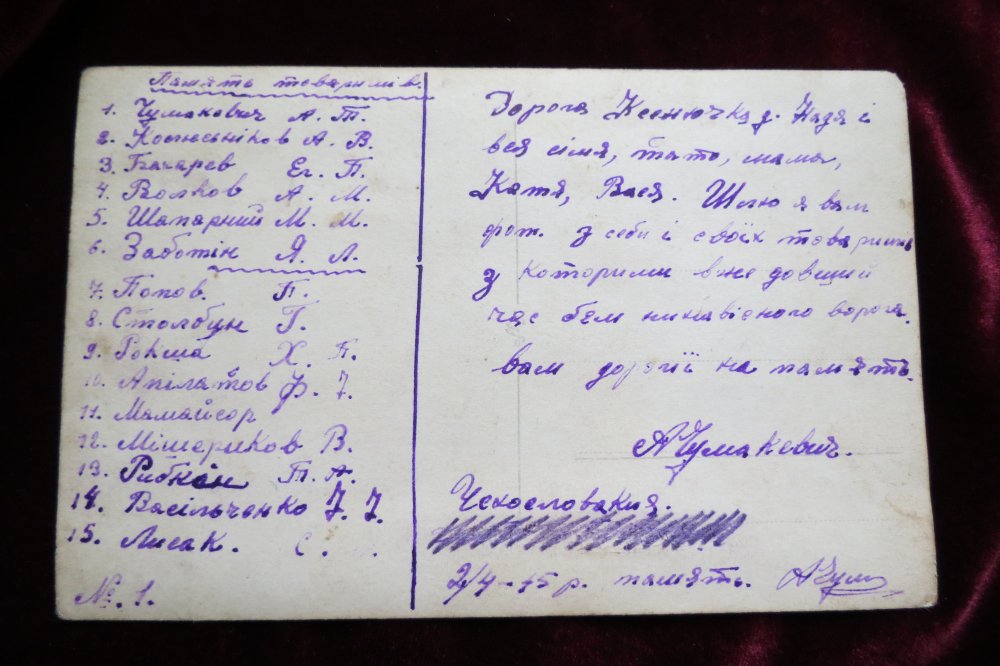 Память товаришів.
1. Чумакович А. Т.
2. А. В.
3. Бахарев Ег. П.
4. Волков А. М.
5. Шапарний М. М.
6. Заботін Я. Л.
7. Попов. П.
8. Столбун Г.
9. Х. П.
10. Апілатов Ф. І.
11. Мамайсор
12. Мішериков В.
13. Рибкін П. А.
14. Васільченко І. І.
15. Лисак. С.
№. 1.
Дорога Ксенючка д. Надя і
вся сімя, тато, мама,
Катя, Вася. Шлю я вам
фот. з себи і своїх товаришів
з которими вже довший
час бем ворога.
вам дорогії на память.
А Чумакевич.
Чехословакия.
2/4-45 р. память. АЧум